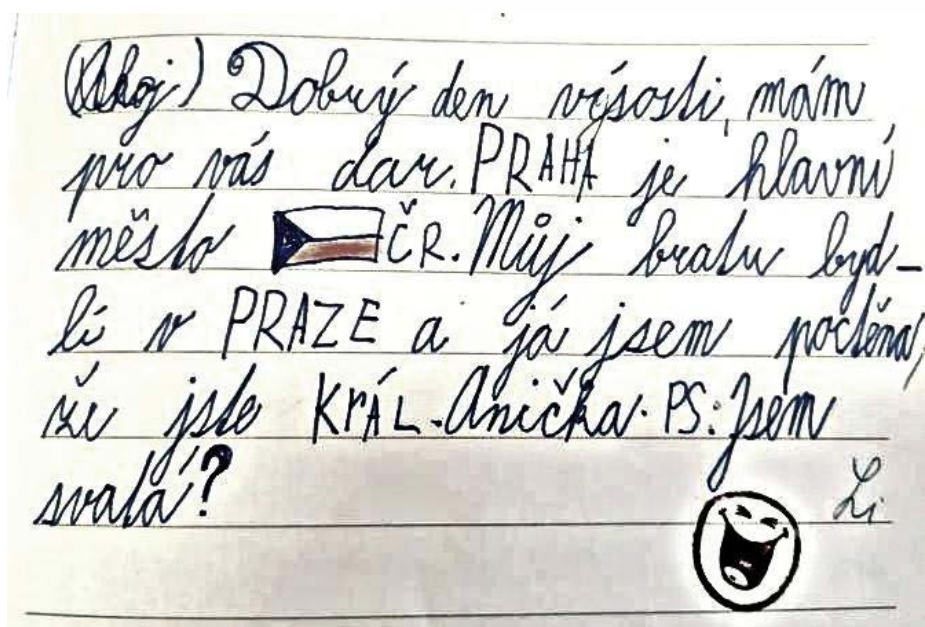 (Ahoj) Dobrý den výsosti, mám
pro vás dar. PRAHA je hlavní
město ČR. Můj bratr byd-
lí v PRAZE a já jsem poctěna,
že jste KrÁL. Anička. PS: Jsem
svatá?
Li